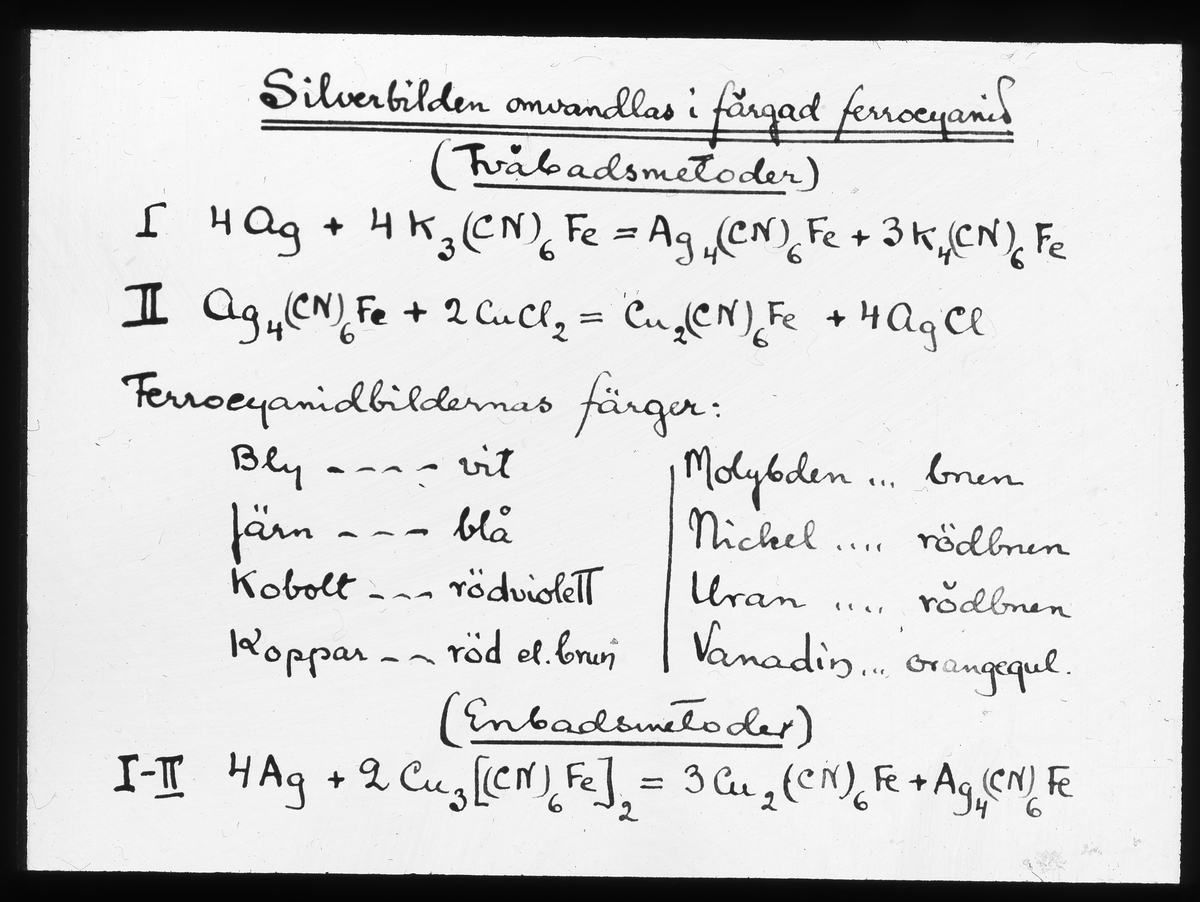 Silverbilden omvandlas i färgad ferrocyanid
(Tvåbadsmetoder)
I 4Ag + 4K₃(CN)₆Fe = Ag₄(CN)₆Fe + 3K₄(CN)₆Fe
II Ag₄(CN)₆Fe + 2CuCl₂ = Cu₂(CN)₆Fe + 4AgCl
Ferrocyanidbildernas färger:
Bly ---- vit
Järn --- blå
Kobolt --- rödviolett
Koppar -- röd el. brun
Molybden ... brun
Nickel .... rödbrun
Uran .... rödbrun
Vanadin ... orangegul.
(Enbadsmetoder)
I-II 4Ag + 2Cu₃[(CN)₆Fe]₂ = 3Cu₂(CN)₆Fe + Ag₄(CN)₆Fe